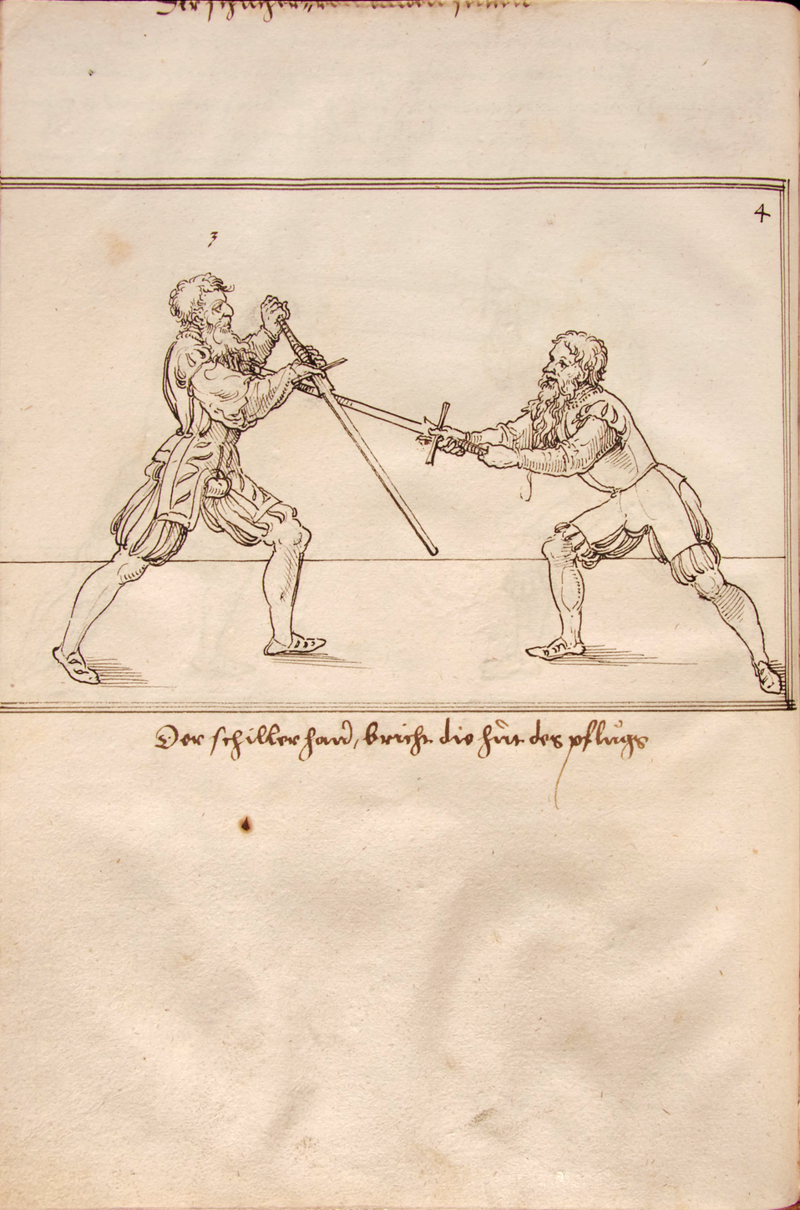 Der
4
3
Der schiller haw, bricht die hůt des pflůgs